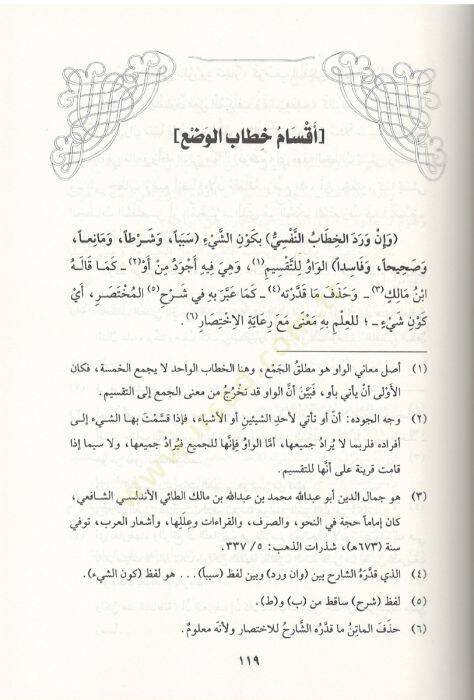 [أَقْسَامُ خِطَابِ الوَضْعِ]
(وَإِنْ وَرَدَ الخِطَابُ النَّفْسِيُّ) بِكَوْنِ الشَّيْءِ (سَبَباً، وَشَرْطاً، وَمَانِعاً،
وَصَحِيحاً، وَفَاسِداً) الوَاوُ لِلتَّقْسِيمِ(١)، وَهِيَ فِيهِ أَجْوَدُ مِنْ أَوْ(٢) ـ كَمَا قَالَهُ
ابْنُ مَالِكٍ(٣) ـ وَحَذَفَ مَا قَدَّرْتُه(٤) ـ كَمَا عَبَّرَ بِهِ فِي شَرْحِ(٥) المُخْتَصَرِ، أَيْ
كَوْنِ شَيْءٍ ـ ؛ لِلعِلْمِ بِهِ مَعْنًى مَعَ رِعَايَةِ الاخْتِصَارِ(٦).
(١) أصل معاني الواو هو مطلقُ الجَمْعِ، وهنا الخطاب الواحد لا يجمع الخمسة، فكان
الأَوْلى أنْ يأتي بأو، فَبَيَّنَ أنَّ الواو قد تخْرُجُ من معنى الجمع إلى التقسيم.
(٢) وجه الجوده: أنّ أو تأتي لأحدِ الشيئين أو الأشياء، فإذا قسَّمْتَ بهـا الشيء إلـى
أفراده فلربما لا يُرادُ جميعها، أمَّا الواوُ فإنَّها للجميع فيُرادُ جميعها، ولا سيما إذا
قامت قرينة على أنَّها للتقسيم.
(٣) هو جمال الدين أبو عبدالله محمد بن عبدالله بن مالك الطائي الأندلسي الشافعي،
كان إماماً حجة في النحو، والصرف، والقراءات وعِلَلِها، وأشعار العرب، توفي
سنة (٦٧٣هـ)، شذرات الذهب: ٥/ ٣٣٧.
(٤) الذي قدَّرَهُ الشارح بين (وان ورد) وبين لفظ (سبباً) . . . هو لفظ (كون الشيء).
(٥) لفظ (شرح) ساقط من (ب) و(ط).
(٦) حذَفَ الماتِنُ ما قدَّرُه الشَّارحُ للاختصار ولأنَّه معلومٌ.
١١٩